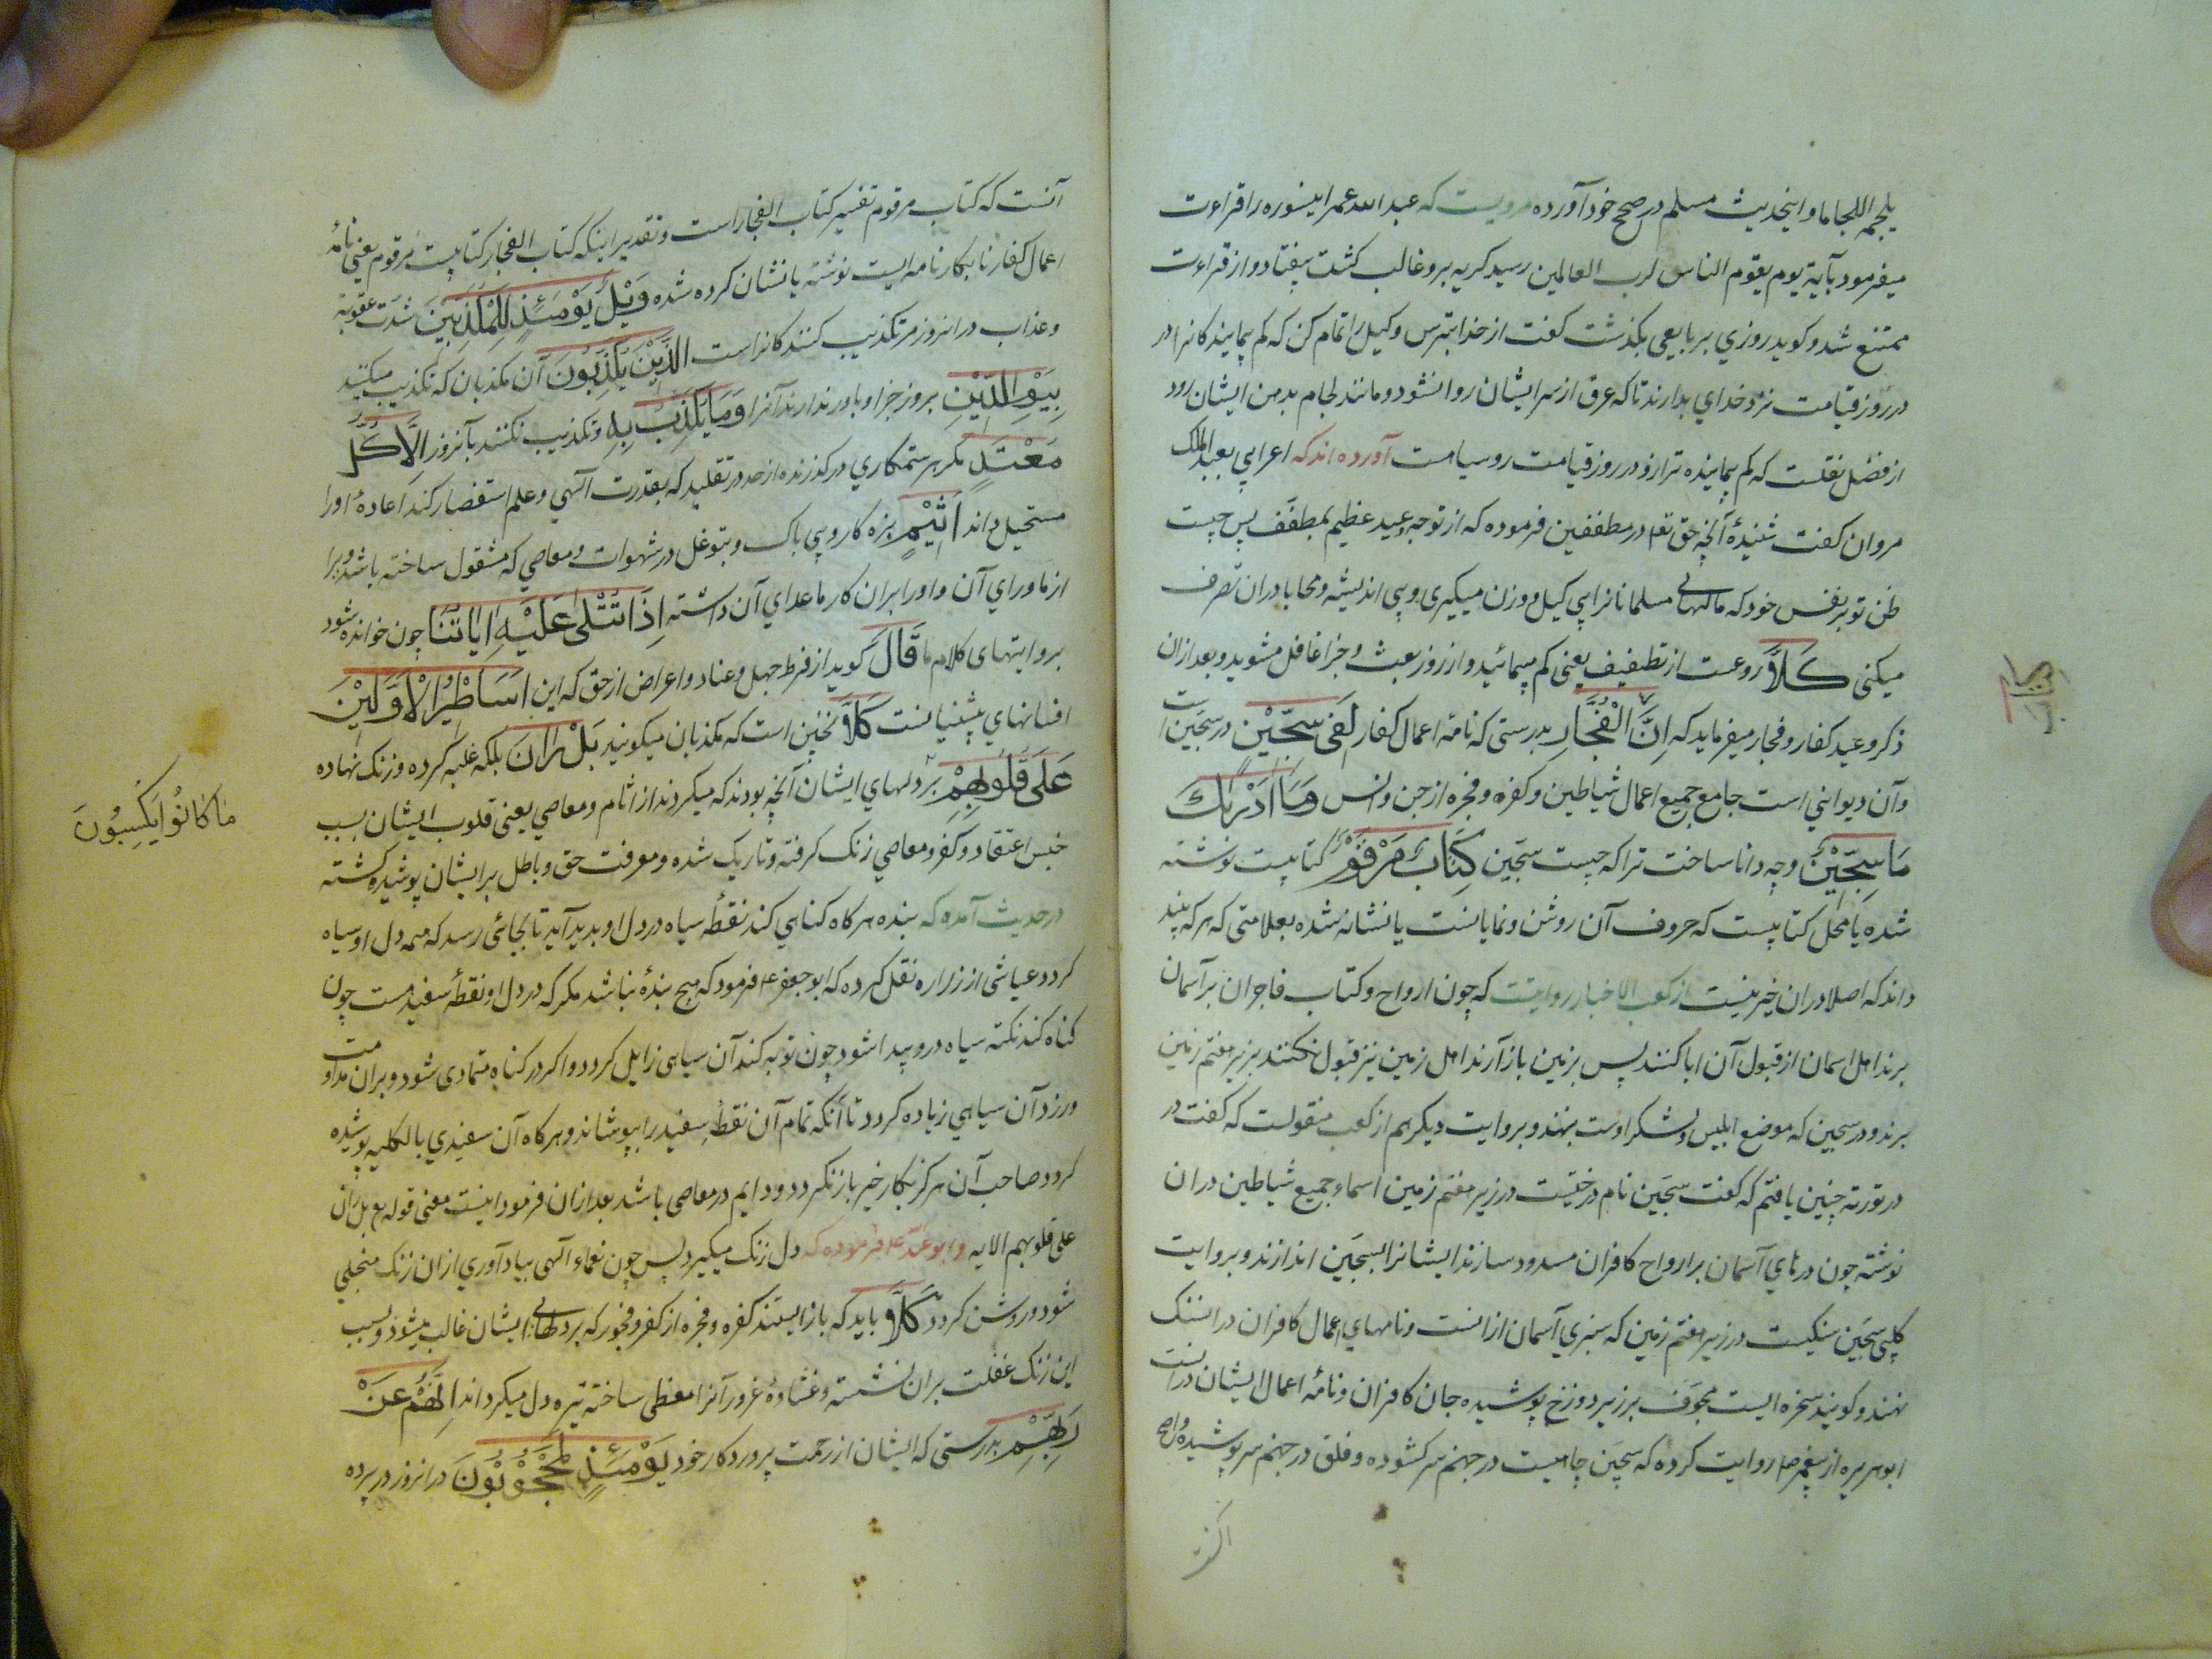 یلجمه اللجاما و اینحدیث مسلم در صحیح خود آورده مرویست که عبدالله عمر اینسوره را قراءت
میفرمود بآیۀ یوم یقوم الناس لرب العالمین رسید کریه برو غالب کشت بیفتاد و از قراءت
ممتنع شد و کوید روزی بر بایعی بکذشت کفت از خدا بترس و کیل را تمام کن که کم پیمایندکانرا در
در روز قیامت نزد خدای بدارند تا که عرق از سر ایشان روا نشود و مانند لجام بدهن ایشان رود
از فضل نقلست که کم پیماینده ترازو در روز قیامت روسیاهست آورده اند که اعرابی بعبد الملک
مروان کفت شنیدۀ آنچه حق تع در مطففین فرموده که از توجه وعید عظیم بمطفف پس چیست
ظن تو بنفس خود که مالهای مسلمانانرا بی کیل و وزن میکیری و بی اندیشه و محابا دران تصرف
میکنی كَلَّا ردعست از تطفیف یعنی کم مپیمائید و از روز بعث و جزا غافل مشوید و بعد ازان
ذکر وعید کفار و فجار میفرماید که اِنَّ الْفُجَّارِ بدرستی که نامۀ اعمال کفار لَفِی سِجِّیْنٍ در سجین است
وآن دیوانی است جامع جمیع اعمال شیاطین و کفره و فجره از جن و انس وَمَا اَدْرٰىكَ
مَا سِجِّیْنٌ وچه دانا ساخت ترا که چیست سجین كِتَابٌ مَرْقُوْمٌ کتابیست نوشته
شده یا محل کتابیست که حروف آن روشن و نمایانست یا نشانه شده بعلامتی که هر که بیند
داند که اصلا دران خیر نیست از کعب الاخبار روایتست که چون ارواح و کتاب فاجران بر آسمان
برند اهل اسمان از قبول آن ابا کنند پس بزمین باز آرند اهل زمین نیز قبول نکنند بزیر هفتم زمین
برند و در سجین که موضع ابلیس و لشکر اوست بنهند و بروایت دیکر هم از کعب منقولست که کفت در
در تورته چنین یافتم که کفت سجین نام درختیست در زیر هفتم زمین اسماء جمیع شیاطین دران
نوشته چون درهای آسمان بر ارواح کافران مسدود سازند ایشانرا بسجین اندازند و بروایت
کلبی سجین سنکیست در زیر هفتم زمین که سبزی آسمان ازانست و نامهای اعمال کافران دران سنک
نهند و کویند سخره ایست مجوف بر زبر دوزخ پوشیده جان کافران و نامۀ اعمال ایشان درانست
ابوهریره از پیغمبر ص روایت کرده که سجین چاهیست در جهنم سر کشوده و فلق در جهنم سر پوشیده واصح
آنست
آنست که کتاب مرقوم تفسیر کتاب الفجار است و تقدیر اینکه کتاب الفجار کتابیست مرقوم یعنی نامۀ
اعمال کفار نابکار نامه ایست نوشته یا نشان کرده شده وَیْلٌ یَوْمَئِذٍ لِلْمُكَذِّبِیْنَ شدت عقوبة
و عذاب در انروز مر تکذیب کنندکانراست الَّذِیْنَ یُكَذِّبُوْنَ آن مکذبان که تکذیب میکنند
بِیَوْمِ الدِّیْنِ بروز جزا و باور ندارند آنرا وَمَا یُكَذِّبُ بِهِ و تکذیب نکنند بآنروز اِلَّا كُلُّ
مُعْتَدٍ مکر هر ستمکاری درکذرنده از حد در تقلید که بقدرت آلهی و علم استقصار کند اعادۀ او را
مستحیل داند اَثِیْمٍ بزه کار و بی باک و متوغل در شهوات و معاصی که مشغول ساخته باشد ویرا
از ماورای آن و او را بران کار ماعدای آن داشته اِذَا تُتْلٰی عَلَیْهِ ایَاتُنَا چون خوانده شود
برو ایتهای کلام ما قَالَ کوید از فرط جهل و عناد و اعراض از حق که این اَسَاطِیْرُ الْاَوَّلِیْنَ
افسانهای پیشینیانست كَلَّا نچنین است که مکذبان میکویند بَلْ رَانَ بلکه غلبه کرده و زنک نهاده
عَلٰی قُلُوْبِهِمْ بر دلهای ایشان آنچه بودند که میکردند از اثام و معاصی یعنی قلوب ایشان بسبب
خبس اعتقاد و کفر و معاصی زنک کرفته و تاریک شده و معرفت حق و باطل بر ایشان پوشیده کشته
در حدیث آمده که بنده هر کاه کناهی کند نقطۀ سیاه در دل او بدید آید تا بجائی رسد که همه دل او سیاه
کردد عیاشی از زراره نقل کرده که ابوجعفر ع فرمود که هیچ بندۀ نباشد مکر که در دل او نقطۀ سفید هست چون
کناه کند نکته سیاه درو پیدا شود چون توبه کند آن سیاهی زایل کردد و اکر در کناه متمادی شود و بران مداومت
ورزد آن سیاهی زیاده کردد تا آنکه تمام آن نقطۀ سفید را بپوشاند و هر کاه آن سفیدی بالکلیه پوشیده
کردد صاحب آن هرکز بکار خیر باز نکردد و دایم در معاصی باشد بعد ازان فرمود اینست معنی قوله تع بل ران
علی قلوبهم الایه و ابو عبد الله ع فرموده که دل زنک میکیرد پس چون نعماء آلهی بیاد آوری ازان زنک منجلی
شود و روشن کردد كَلَّا باید که باز ایستند کفره و فجره از کفر و فجور که بر دلهای ایشان غالب میشود و بسبب
این زنک غفلت بران نشسته و غشاوۀ غرور آنرا مغطی ساخته تیره دل میکرداند اِنَّهُمْ عَنْ
رَبِّهِمْ بدرستی که ایشان از رحمت پروردکار خود یَوْمَئِذٍ لَمَحْجُوْبُوْنَ در انروز در پرده
مَا كَانُوْا یَكْسِبُوْنَ